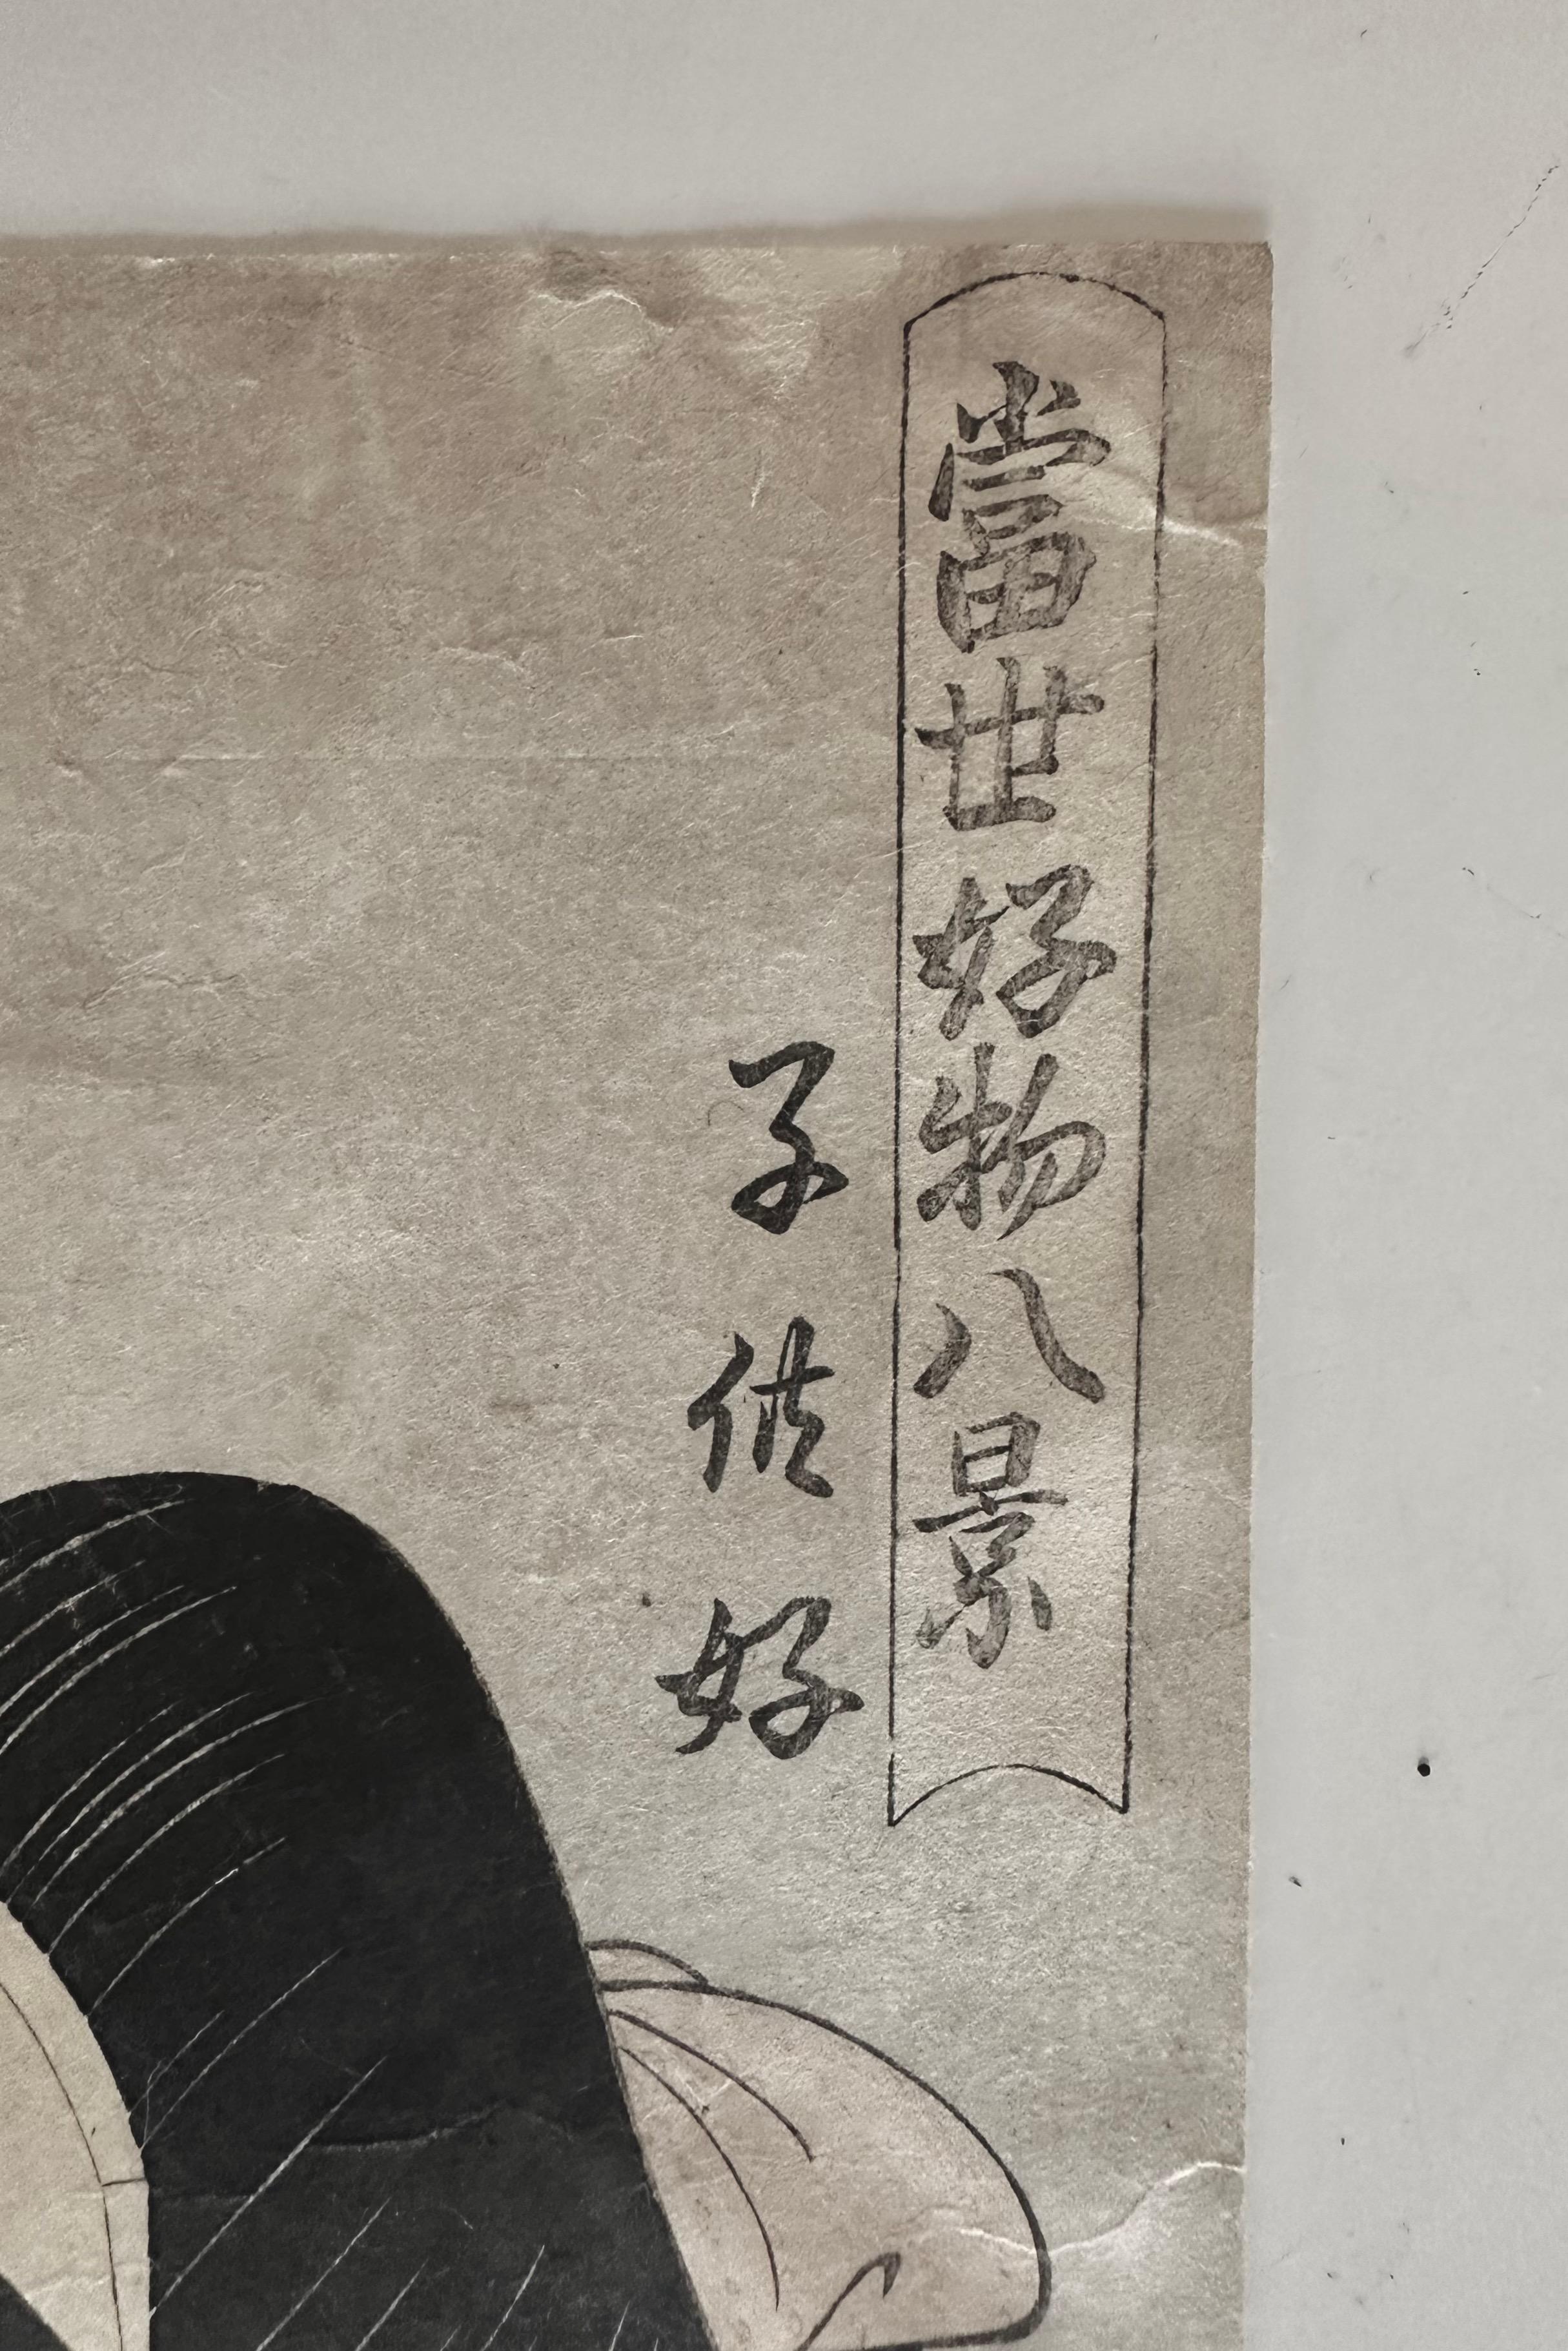 當世好物八景
子供好